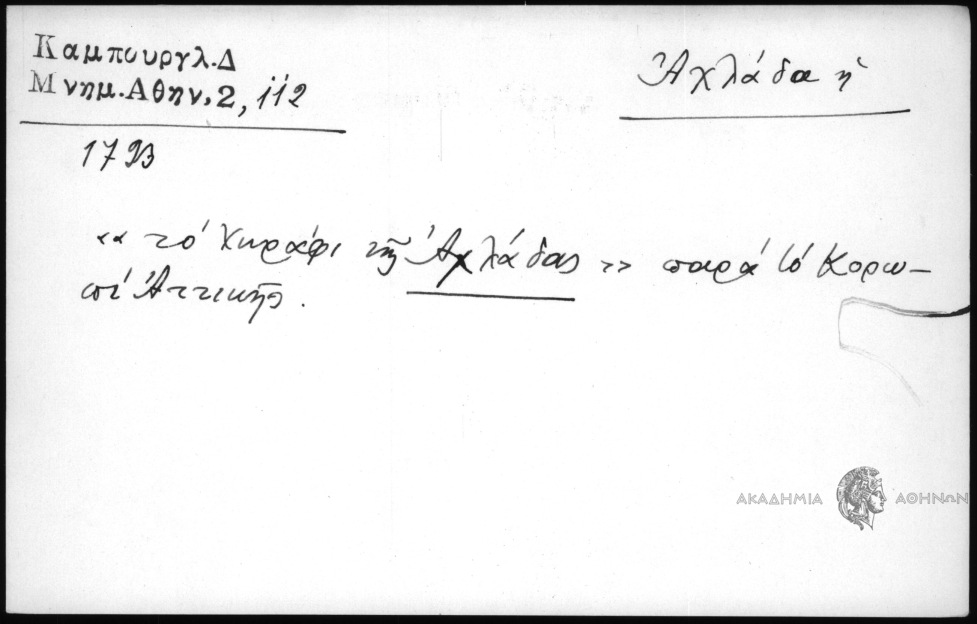 Καμπουργλ.Δ
Μνημ.Αθην.2, 112
Ἀχλάδα ἡ
1793
«« τό χωράφι τῆς Ἀχλάδας »» παρά τό Κορω-
πί Ἀττικῆς.
ΑΚΑΔΗΜΙΑ ΑΘΗΝΩΝ